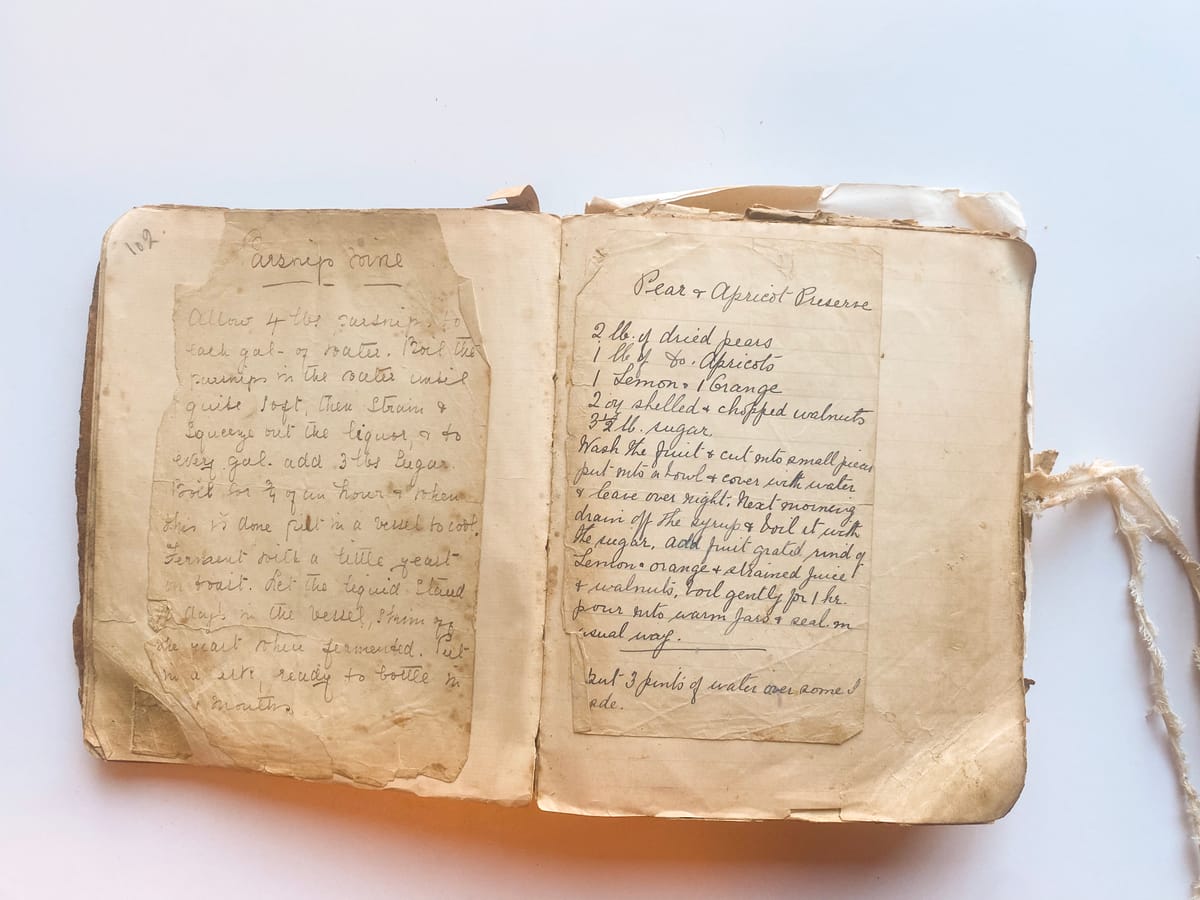 102
Parsnip Wine
Allow 4 lbs parsnips to
each gal- of water. Boil the
parsnips in the water until
quite soft, then strain &
squeeze out the liquor, & to
every gal. add 3 lbs sugar.
Boil for ¾ of an hour & when
this is done put in a vessel to cool.
Ferment with a little yeast
on toast. Let the liquid stand
days in the vessel, skim off
the yeast when fermented. Put
in a , ready to bottle in
months
Pear & Apricot Preserve
2 lb. of dried pears
1 lb of do. Apricots
1 Lemon & 1 Orange
2 oz shelled & chopped walnuts
3½ lb. sugar.
Wash the fruit & cut into small pieces
put into a bowl & cover with water
& leave over night. Next morning
drain off the syrup & boil it with
the sugar. add fruit grated rind of
Lemon & orange & strained juice
& walnuts, boil gently for 1 hr.
pour into warm jars & seal in
usual way.
but 3 pints of water over some I